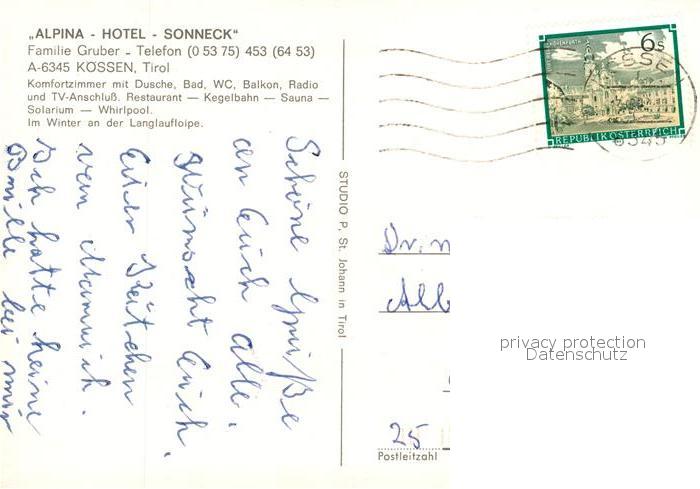 „ALPINA - HOTEL - SONNECK"
Familie Gruber - Telefon (0 53 75) 453 (64 53)
A-6345 KÖSSEN, Tirol
Komfortzimmer mit Dusche, Bad, WC, Balkon, Radio
und TV-Anschluß. Restaurant — Kegelbahn — Sauna —
Solarium — Whirlpool.
Im Winter an der Langlaufloipe.
Schöne Grüße
an Euch alle.
Wünscht Euch,
Euer Kätchen
von
Ich hatte keine
Brille bei mir
STUDIO P, St. Johann in Tirol
6s
REPUBLIK ÖSTERREICH
6345
Dr. m
All
25
Postleitzahl
privacy protection
Datenschutz